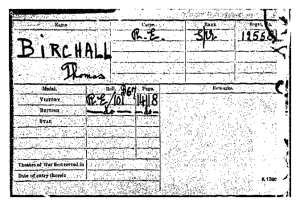 Name Corps. Rank Regtl. No.
BIRCHALL R.E. Spr
Thomas
Medal. Roll. Page. Remarks.
VICTORY R.E./101 1418
BRITISH do do
STAR
Theatre of War first served in
Date of entry therein
K. 1380